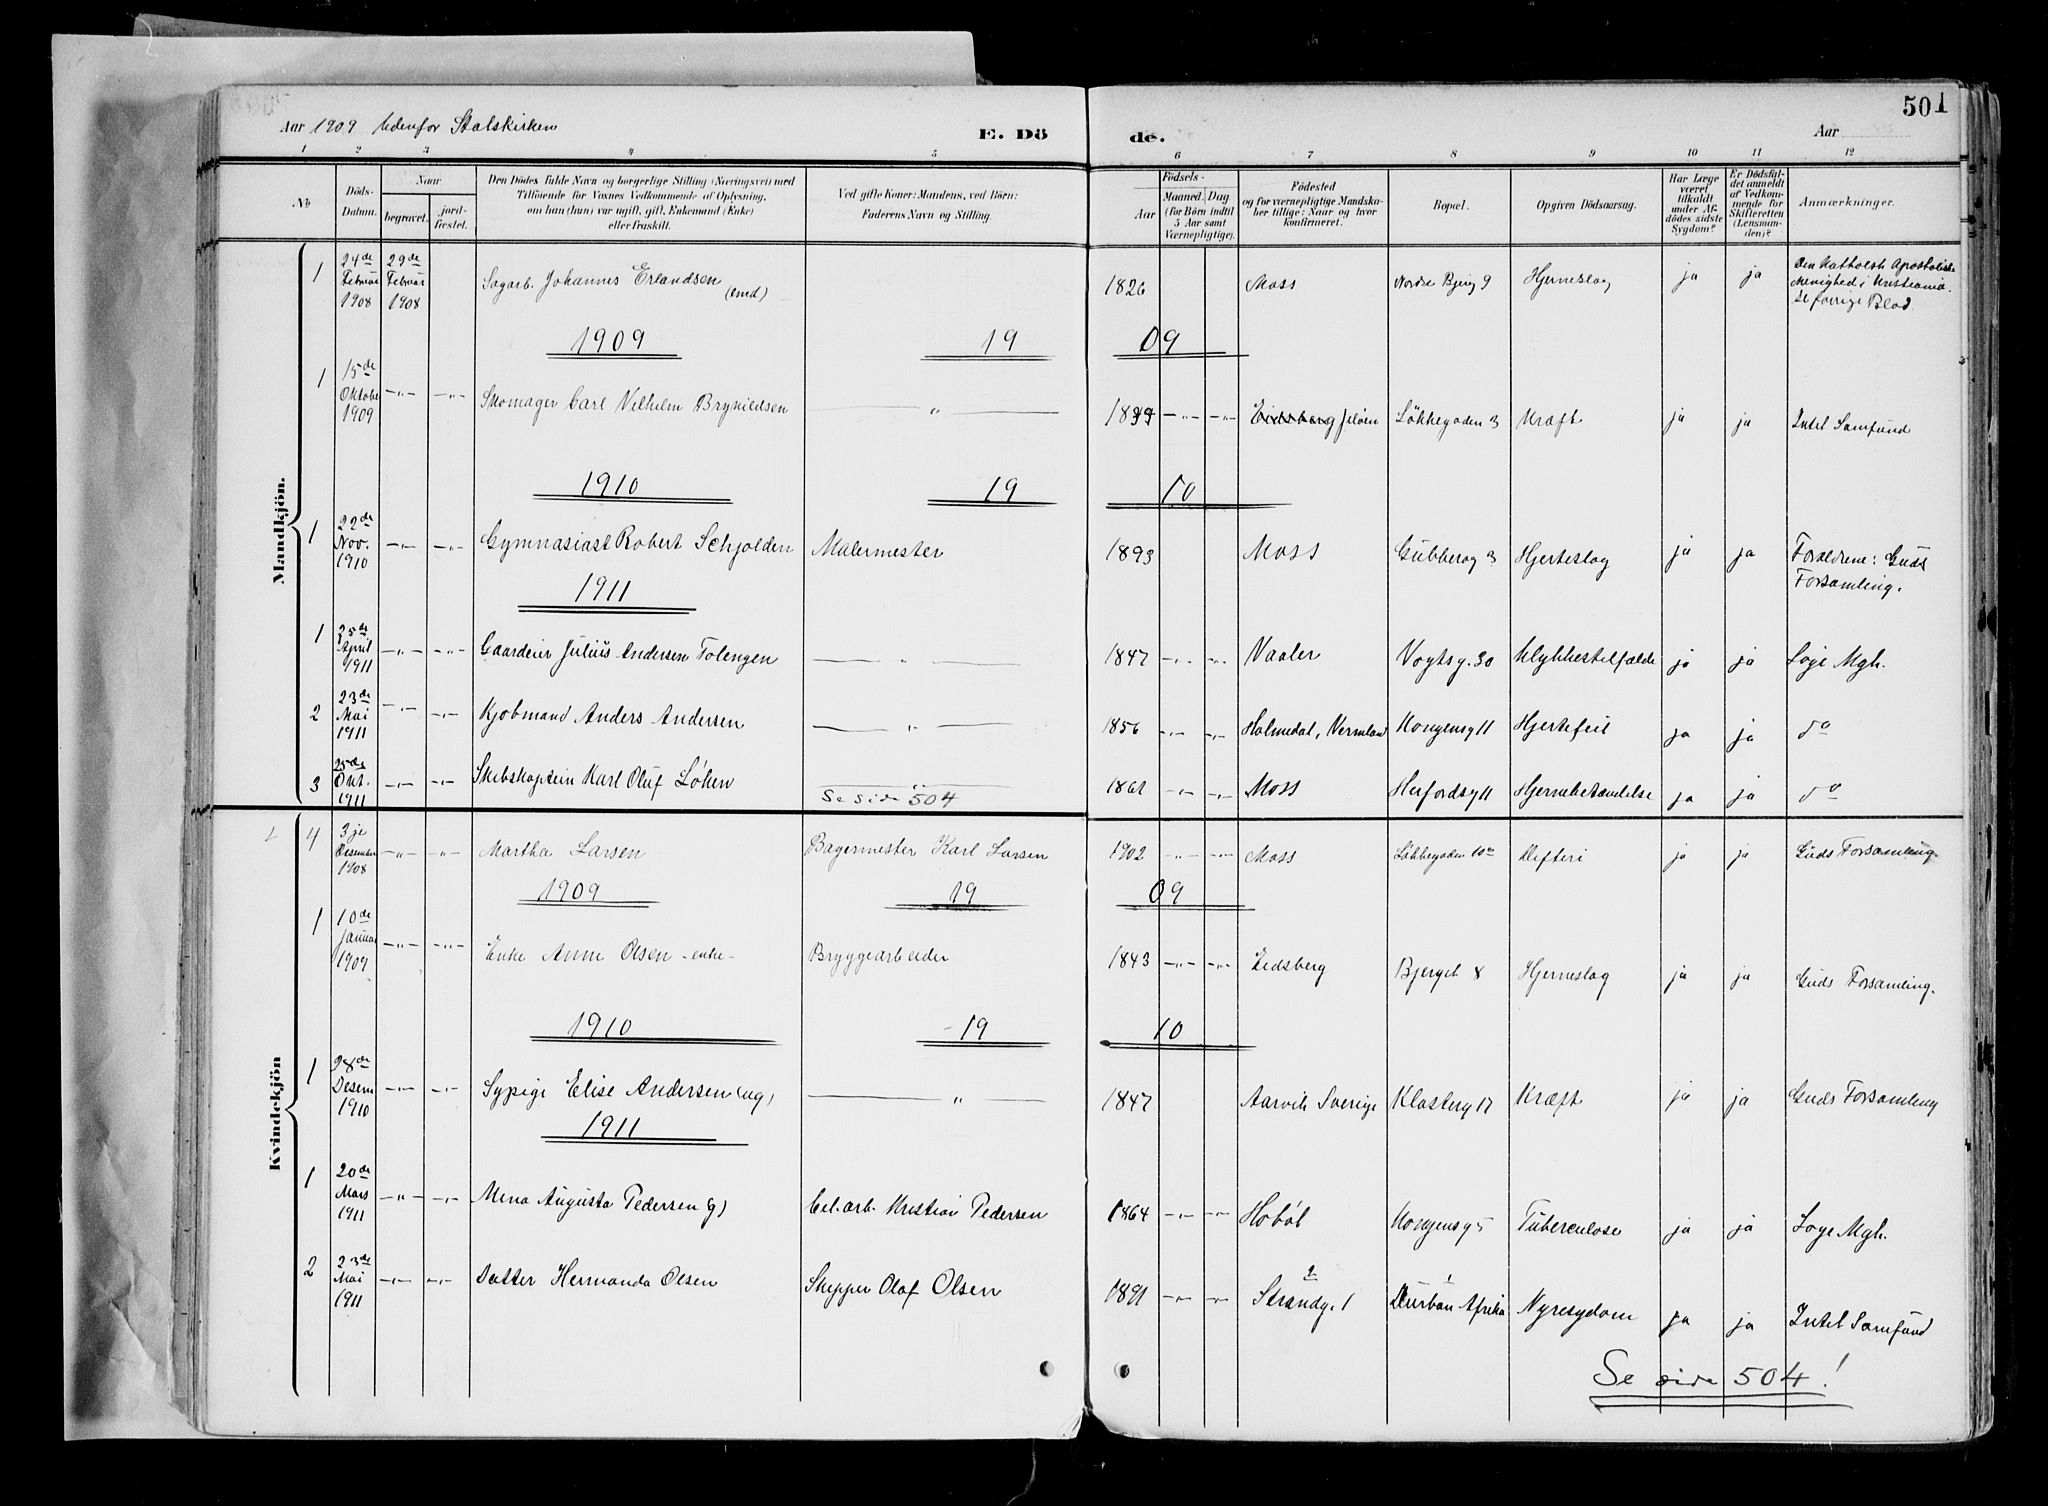 501
Aar 1909 Udenfor Statskirken
E. Dö
de.
Aar
1 2 3 4 5 6 7 8 9 10 11 12
No
Döds-
Datum.
Naar
begravet.
jord-
fæstet.
Den Dödes fulde Navn og borgerlige Stilling (Næringsvei) med
Tilföiende for Voxnes Vedkommende af Oplysning,
om han (hun) var ugift, gift, Enkemand (Enke)
eller fraskilt.
Ved gifte Koner: Mandens, ved Börn:
Faderens Navn og Stilling.
Födsels-
Aar
Maaned.
Dag
(for Börn indtil
5 Aar samt
Værnepligtige).
Födested
og for værnepligtige Mandska-
ber tillige: Naar og hvor
konfirmeret.
Bopæl.
Opgiven Dödsaarsag.
Har Læge
været
tilkaldt
under Af-
dödes sidste
Sygdom?
Er Dödsfal-
det anmeldt
af Vedkom-
mende for
Skifteretten
(Lensman-
den)?
Anmærkninger.
Mandkjön.
1 24de Februar 1908 29de Februar 1908 Sagarb. Johannes Erlandsen (emd) 1826 Moss Nordre Bjerg 9 Hjerneslag ja ja Den Katholsk Apostoliske
Menighed i Kristiania.
Se forrige Blad
1909 19 09
1 15de Oktober 1909 -"- -"- Skomager Carl Vilhelm Brynildsen " 1849 -"- -"- Eidsberg Jeløen Løkkegaden 3 Kræft ja ja Intet Samfund
1910 19 10
1 22de Nov. 1910 -"- -"- Gymnasiast Robert Schjolden Malermester 1893 Moss Gubberog 3 Hjerteslag ja ja Forældrene: Guds
Forsamling.
1911
1 25de April 1911 -"- -"- Gaardeier Julius Andersen Tolengen " 1847 -"- -"- Vaaler Vogtsg. 30 Ulykkestilfælde ja ja Løge Mgh.
2 23de Mai 1911 -"- -"- Kjøbmand Anders Andersen " 1856 -"- -"- Holmedal, Vermland Kongensg 11 Hjertefeil ja ja do
3 25de Okt. 1911 -"- -"- Skibskaptein Karl Oluf Løken " 1861 -"- -"- Moss Herfordsg 11 Hjernebetændelse ja ja do
Se side 504
Kvindekjön
4 3je Desember 1908 -"- -"- Martha Larsen Bagermester Karl Larsen 1902 -"- -"- Moss Løkkegaden 10a Difteri ja ja Guds Forsamling.
1909 19 09
1 10de Januar 1909 -"- -"- Enke Anne Olsen -enke- Bryggearbeider 1843 -"- -"- Eidsberg Bjerget 8 Hjerneslag ja ja Guds Forsamling.
1910 19 10
1 28de Desem 1910 -"- -"- Sypige Elise Andersen (ug) " 1847 Aarvik Sverige Klosterg 17 Kræft ja ja Guds Forsamling
1911
1 20de Mars 1911 -"- -"- Mina Augusta Pedersen (g) Cel.arb. Kristian Pedersen 1864 -"- -"- Hobøl Kongensg 5 Tuberculose ja ja Løge Mgh.
2 23de Mai 1911 -"- -"- Datter Hermanda Olsen Skipper Olaf Olsen 1891 -"- -"- 2 Strandg. 1 1 Durban Afrika Nyresygdom ja ja Intet Samfund
Se side 504!